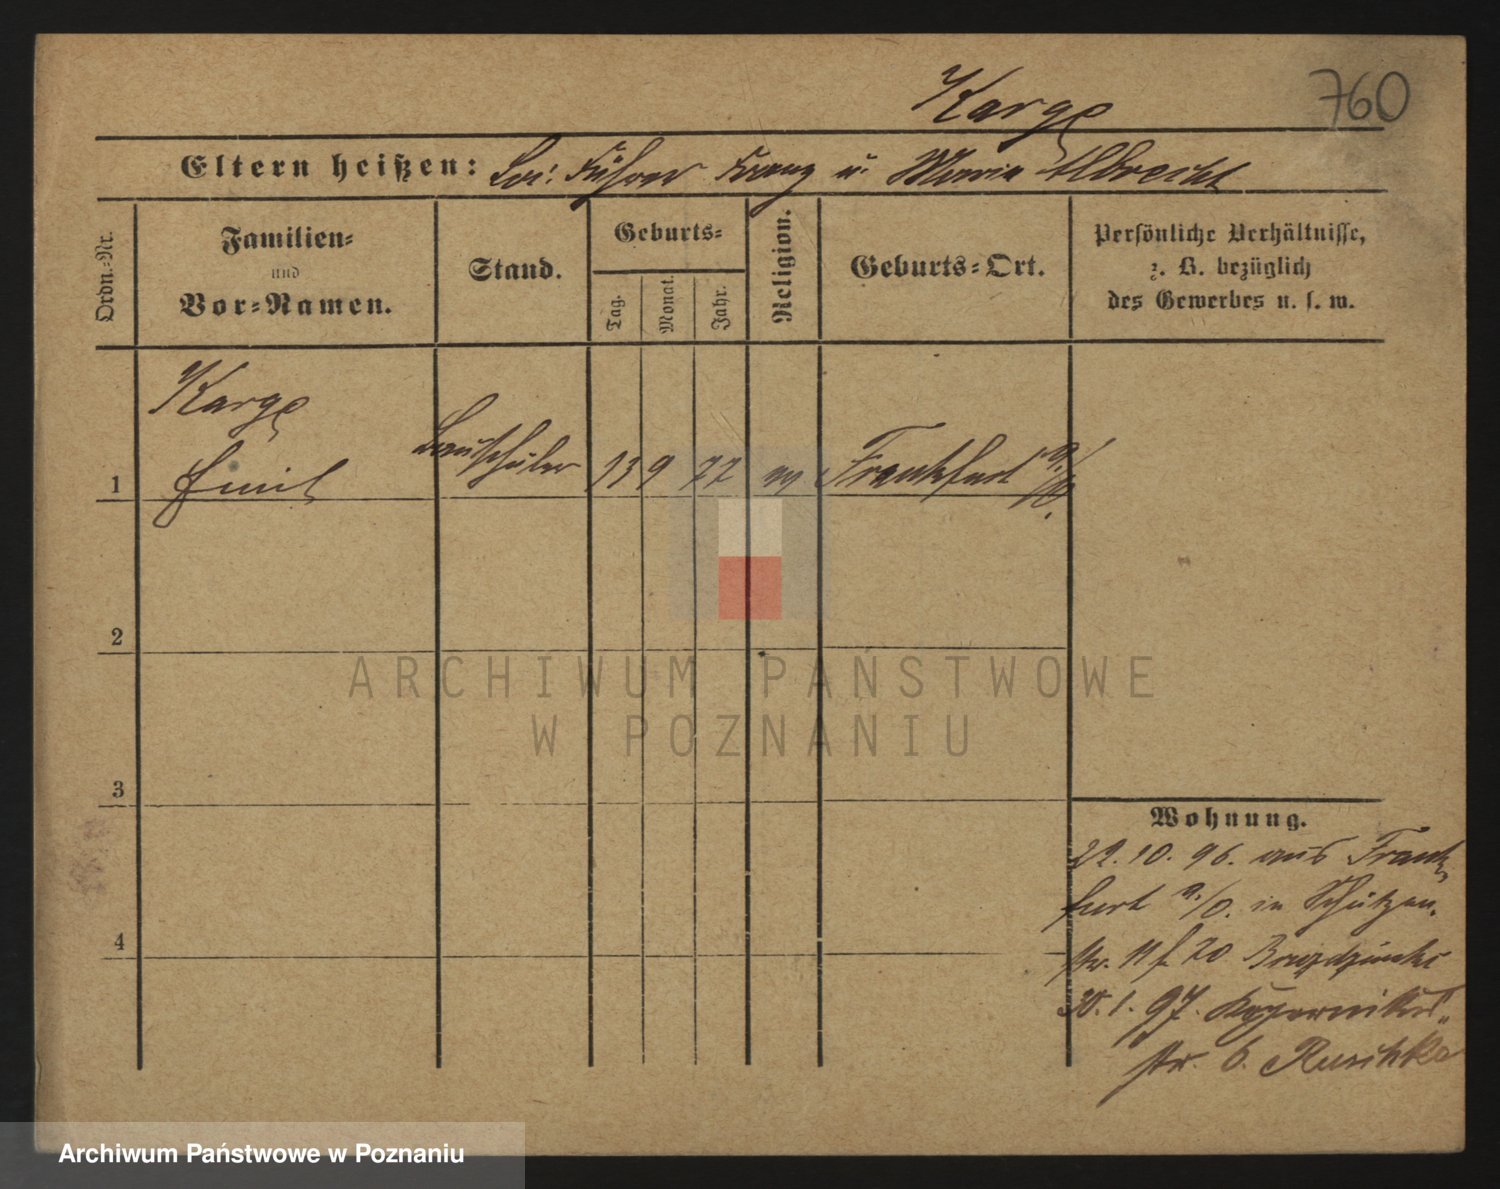 760
Karge
Eltern heißen: Führer Franz u. Maria Albrecht
Ordn.-Nr.
Familien-
und
Vor-Namen.
Stand.
Geburts-
Tag.
Monat.
Jahr.
Religion.
Geburts-Ort.
Persönliche Verhältnisse,
z. B. bezüglich
des Gewerbes u. s. w.
Karge
1 Emil Bauschüler 13 9 77 Frankfurt a./O.
2
3
4
Wohnung.
22. 10. 96. aus Frank-
furt a./O. in Schützen-
str. 11 f 20
30. 1. 97. Kopernikus-
str. 6. Ruschke
ARCHIWUM PAŃSTWOWE
W POZNANIU
Archiwum Państwowe w Poznaniu